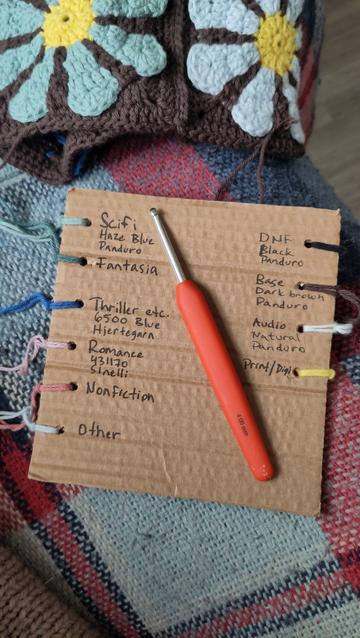 Scifi
Haze Blue
Panduro
Fantasia
Thriller etc.
6500 Blue
Hjertegarn
Romance
431170
Sinelli
Nonfiction
Other
DNF
Black
Panduro
Base
Dark brown
Panduro
Audio
Natural
Panduro
Print/Digi
4.00 mm